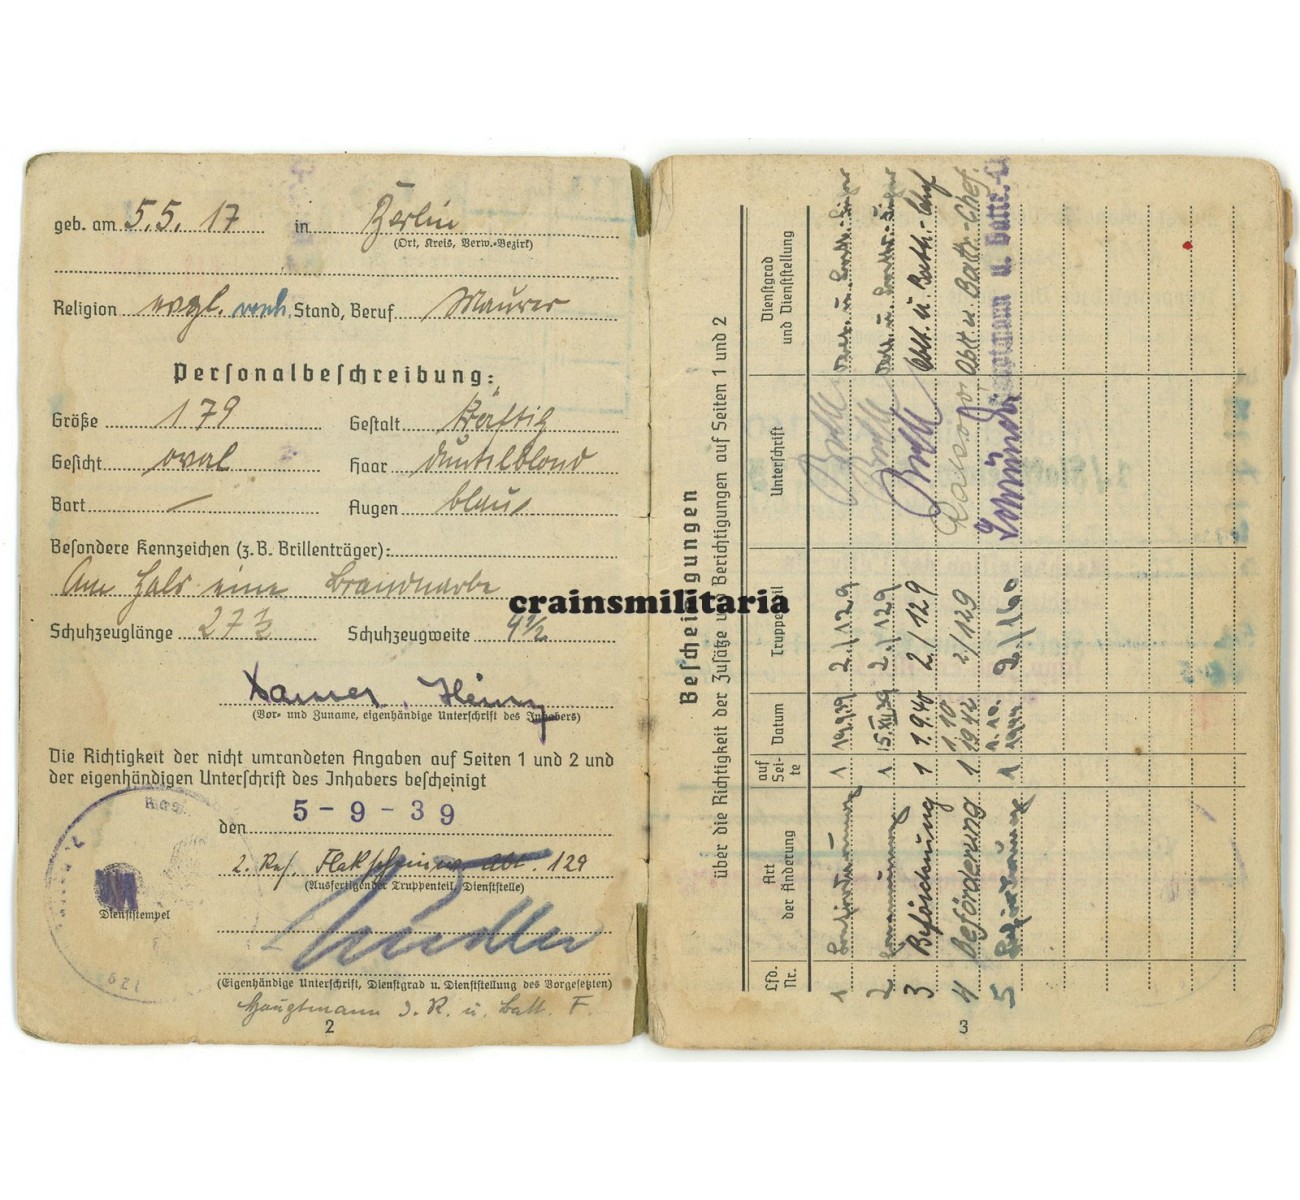 geb. am 5.5.17 in Berlin
(Ort, Kreis, Verw.-Bezirk)
Religion evgl. Stand, Beruf Maurer
Personalbeschreibung:
Größe 179 Gestalt kräftig
Gesicht oval Haar dunkelblond
Bart — Augen blau
Besondere Kennzeichen (z.B. Brillenträger):
Am Hals eine Brandnarbe
Schuhzeuglänge 27½ Schuhzeugweite 4½
Heinz
(Vor- und Zuname, eigenhändige Unterschrift des Inhabers)
Die Richtigkeit der nicht umrandeten Angaben auf Seiten 1 und 2 und
der eigenhändigen Unterschrift des Inhabers bescheinigt
den 5-9-39
2. Res. Flakscheinw. Abt. 129
(Ausfertigender Truppenteil, Dienststelle)
Dienststempel
129
(Eigenhändige Unterschrift, Dienstgrad u. Dienststellung des Vorgesetzten)
Hauptmann d. R. u. Batt. F.
2
crainsmilitaria
Bescheinigungen
über die Richtigkeit der Zusätze und Berichtigungen auf Seiten 1 und 2
Lfd. Nr. Art der Änderung auf Seite Datum Truppenteil Unterschrift Dienstgrad und Dienststellung
1 1 2./129
2 1 15.XII.39 2./129
3 1 1.9.40 2./129 Oblt. u. Batt.-Chef
4 Beförderung 1 1.10.1942 2/129 Oblt. u. Battr.-Chef.
5 1 1.10.1944 2/160 Hauptmann u. Battr.-C
3